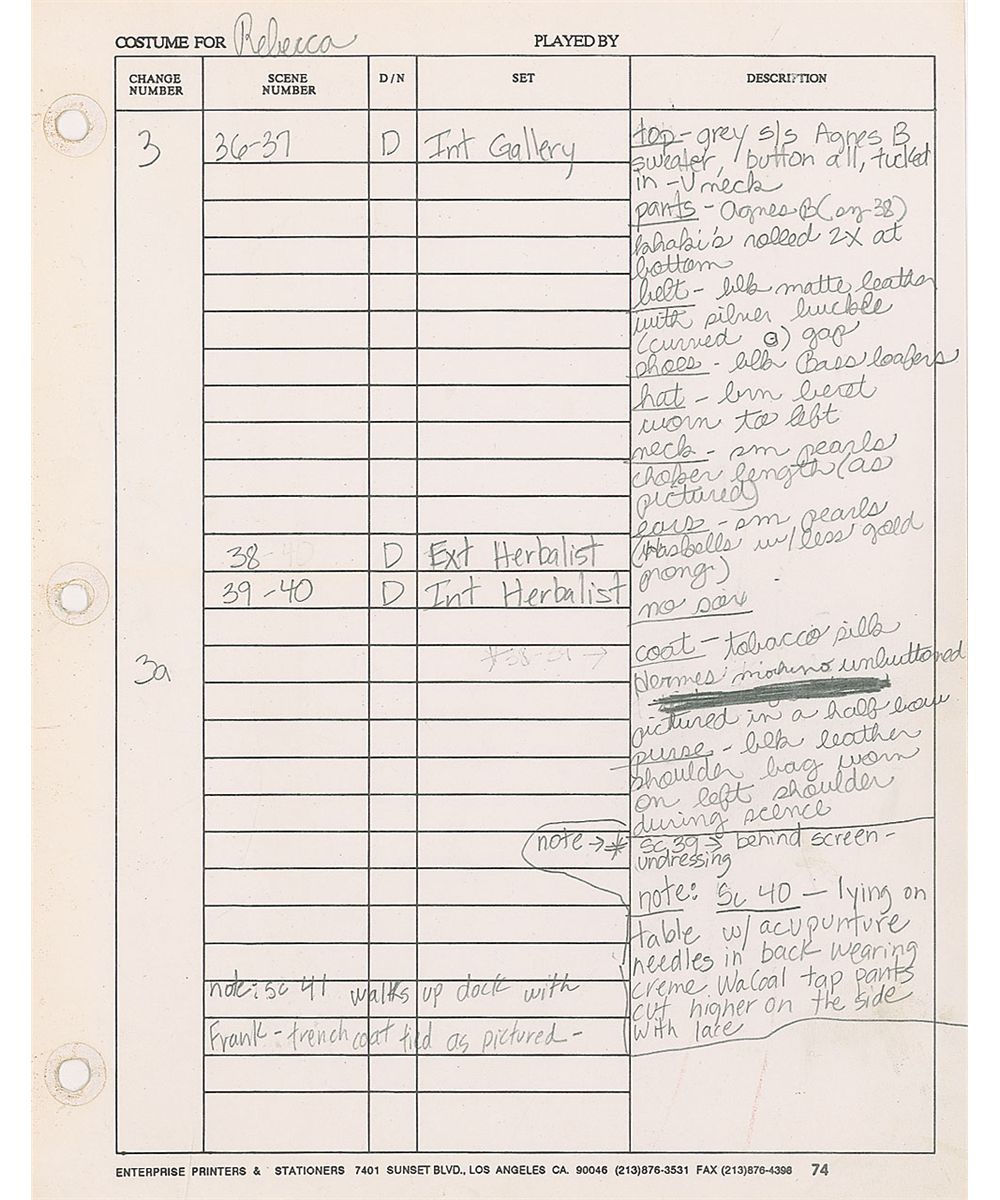 COSTUME FOR Rebecca PLAYED BY
CHANGE NUMBER SCENE NUMBER D/N SET DESCRIPTION
3 36-37 D Int Gallery
top - grey s/s Agnes B
sweater, button all, tucked
in - V neck
pants - Agnes B (sz 38)
khaki's rolled 2X at
bottom
belt - blk matte leather
with silver buckle
(curved) gap
shoes - blk Bass loafers
hat - brn beret
worn to left
neck - sm pearls
choker length (as
pictured)
ears - sm pearls
(Haskells w/ less gold
prong)
38 D Ext Herbalist
39-40 D Int Herbalist
no sox
3a
*38-39 →
coat - tobacco silk
Hermes unbuttoned
pictured in a half bow
purse - blk leather
shoulder bag worn
on left shoulder
during scence
note → * Sc 39 → behind screen -
undressing
note: Sc 40 - lying on
table w/ acupunture
needles in back wearing
creme WaCoal tap pants
cut higher on the side
with lace
note: sc 41 walks up dock with
Frank - trench coat tied as pictured -
ENTERPRISE PRINTERS & STATIONERS 7401 SUNSET BLVD., LOS ANGELES CA. 90046 (213)876-3531 FAX (213)876-4398 74